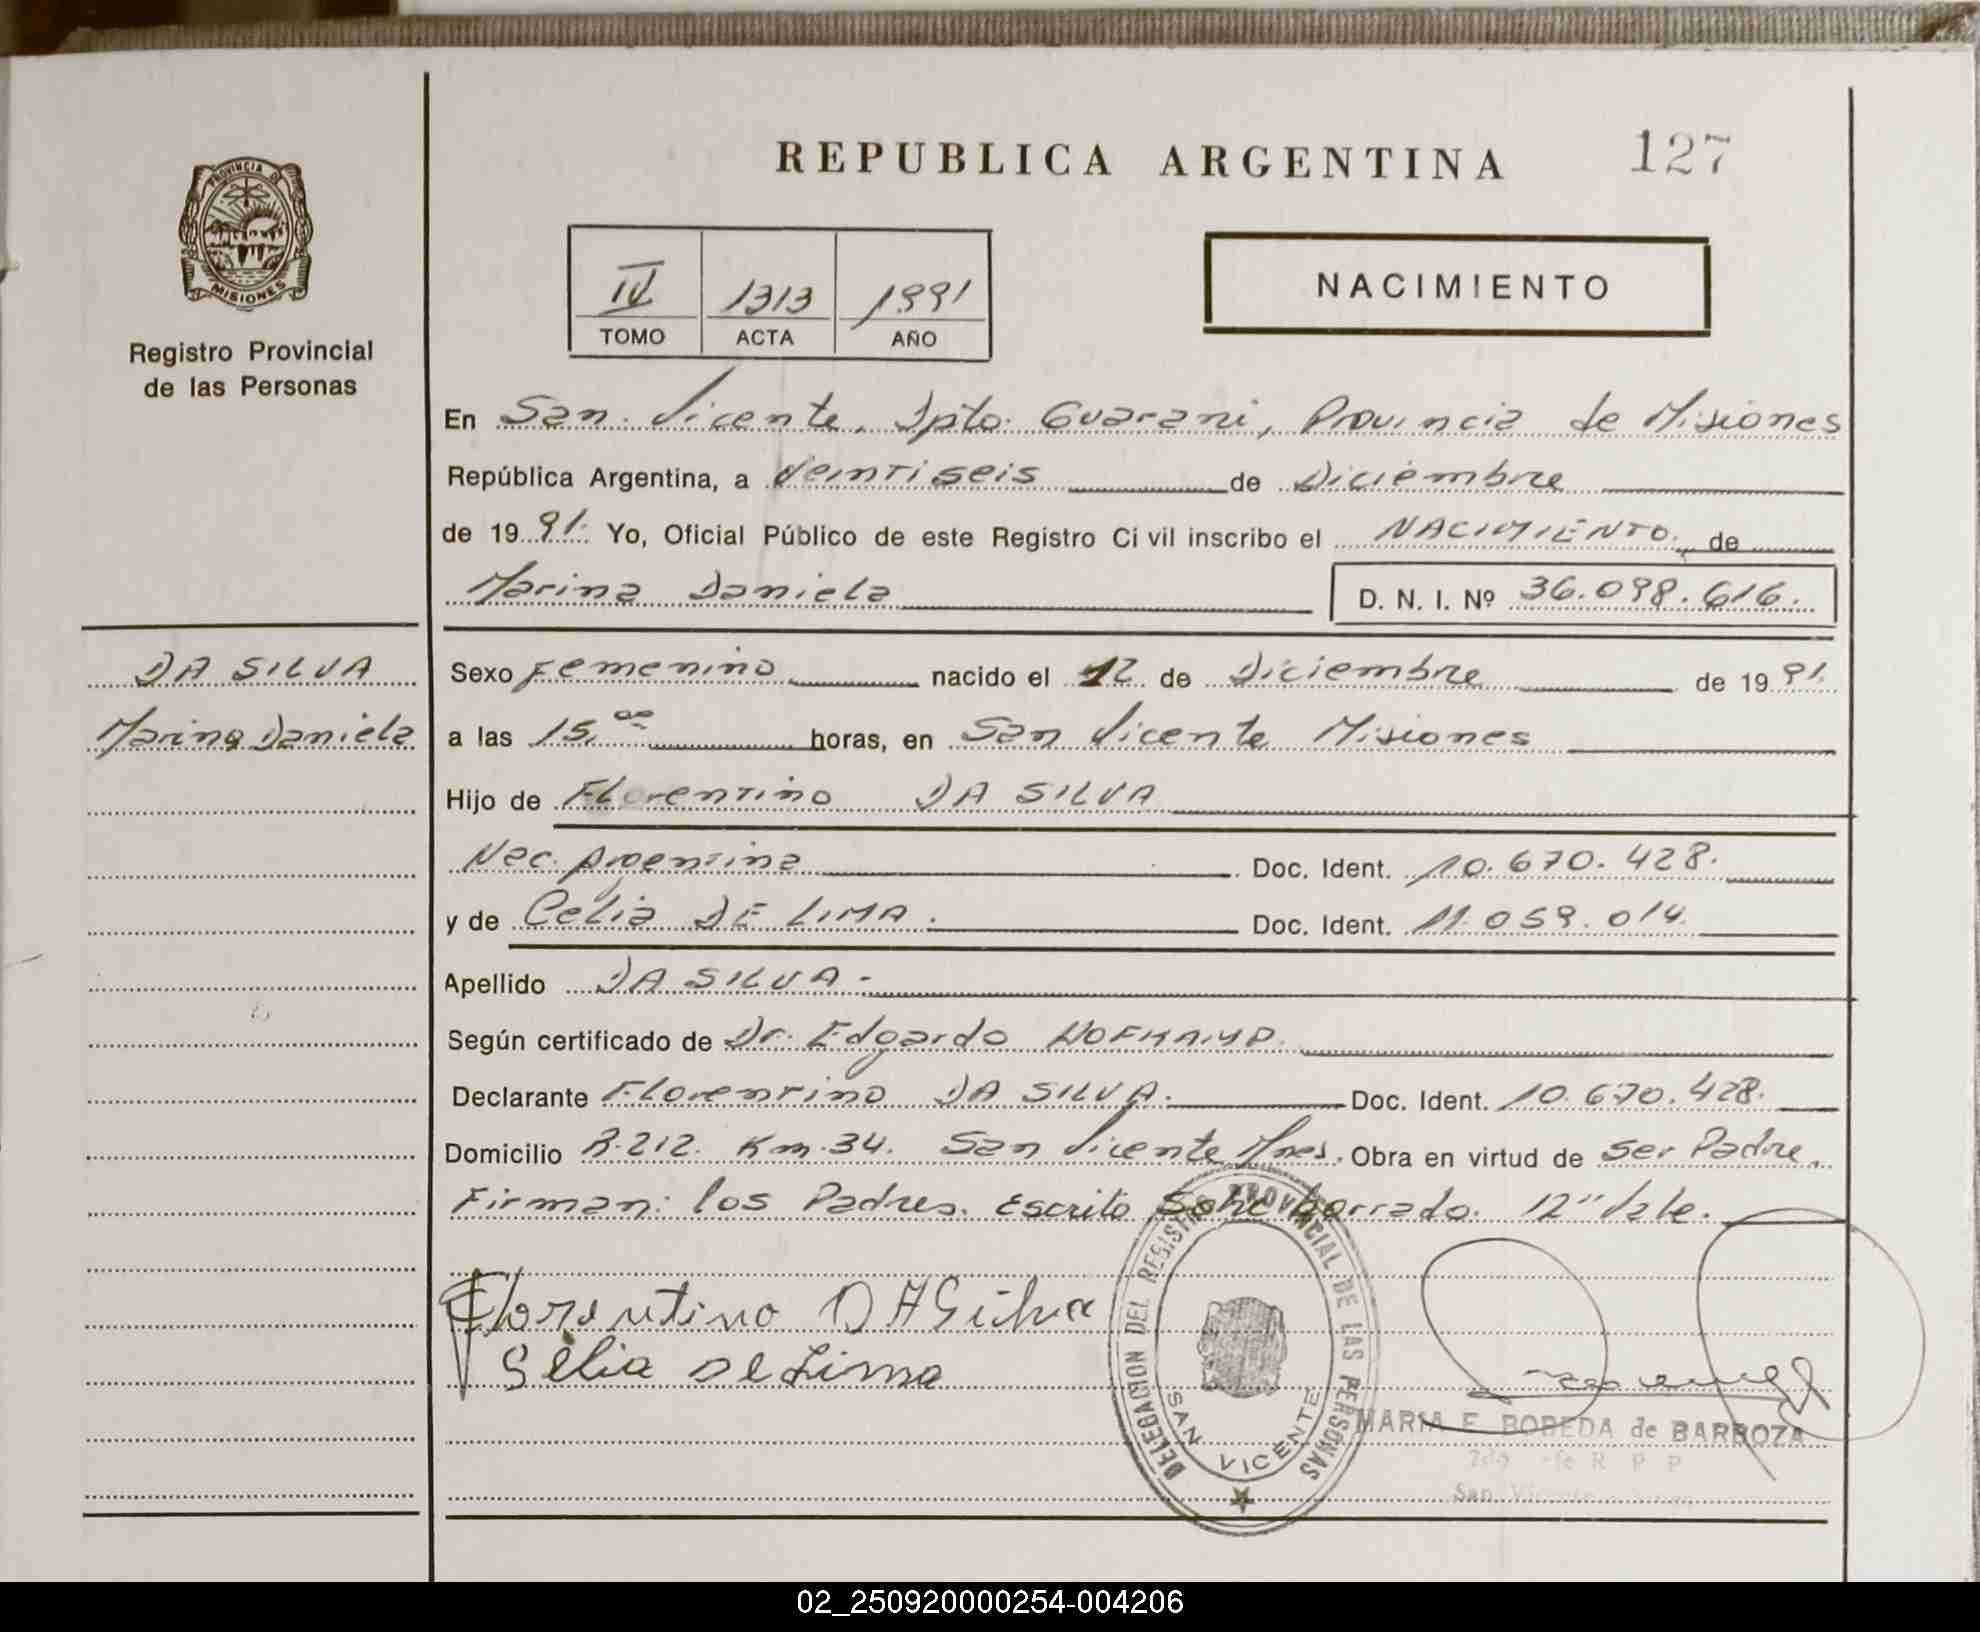 REPUBLICA ARGENTINA
127
PROVINCIA DE
MISIONES
Registro Provincial
de las Personas
IV 1313 1991
TOMO ACTA AÑO
NACIMIENTO
En San Vicente, Dpto. Guarani, Provincia de Misiones
República Argentina, a Veintiseis de Diciembre
de 1991. Yo, Oficial Público de este Registro Civil inscribo el NACIMIENTO de
Marina Daniela D. N. I. Nº 36.098.616.
DA SILVA
Marina Daniela
Sexo Femenino nacido el 12 de Diciembre de 1991.
a las 15,00 horas, en San Vicente Misiones
Hijo de Florentino DA SILVA
Nac. Argentina Doc. Ident. 10.670.428.
y de Celia DE LIMA. Doc. Ident. 11.059.014.
Apellido DA SILVA.-
Según certificado de Dr. Edgardo HOFKAMP.
Declarante Florentino DA SILVA. Doc. Ident. 10.670.428.
Domicilio R.212. Km.34. San Vicente Mnes. Obra en virtud de ser Padre.
Firman: los Padres. Escrito Sobre borrado. 12" Vale.
Florentino DA Silva
Selia De Lima
DELEGACION DEL REGISTRO PROVINCIAL DE LAS PERSONAS
SAN VICENTE
MARIA E. BOBEDA de BARBOZA
R P P
San Vicente
02_250920000254-004206